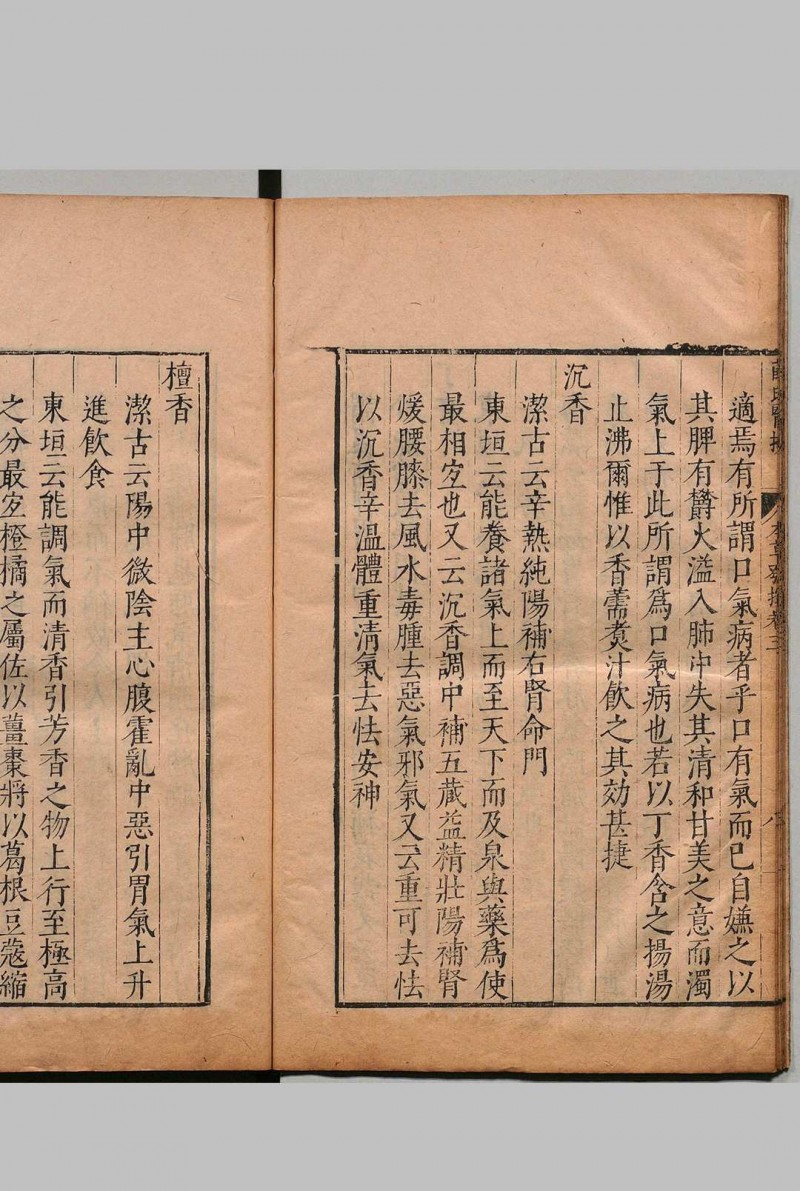 適焉有所謂口氣病者乎口有氣而已自嫌之以
其脾有欝火溢入肺中失其清和甘美之意而濁
氣上于此所謂爲口氣病也若以丁香含之揚湯
止沸爾惟以香薷煑汁飲之其効甚捷
沉香
潔古云辛熱純陽補右腎命門
東垣云能養諸氣上而至天下而及泉與藥爲使
最相宜也又云沉香調中補五藏益精壯陽補腎
煖腰膝去風水毒腫去惡氣邪氣又云重可去怯
以沉香辛温體重清氣去怯安神
檀香
潔古云陽中微陰主心腹霍亂中惡引胃氣上升
進飲食
東垣云能調氣而清香引芳香之物上行至極高
之分最宜橙橘之屬佐以薑棗將以葛根豆蔻縮